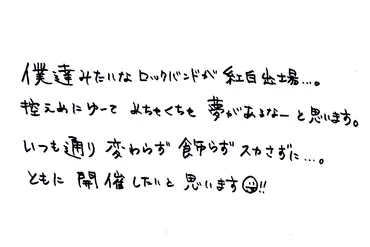 僕達みたいなロックバンドが紅白出場…。
控えめにゆーてめちゃくちゃ夢があるなーと思います。
いつも通り変わらず飾らずスカさずに…。
ともに開催したいと思います😃!!